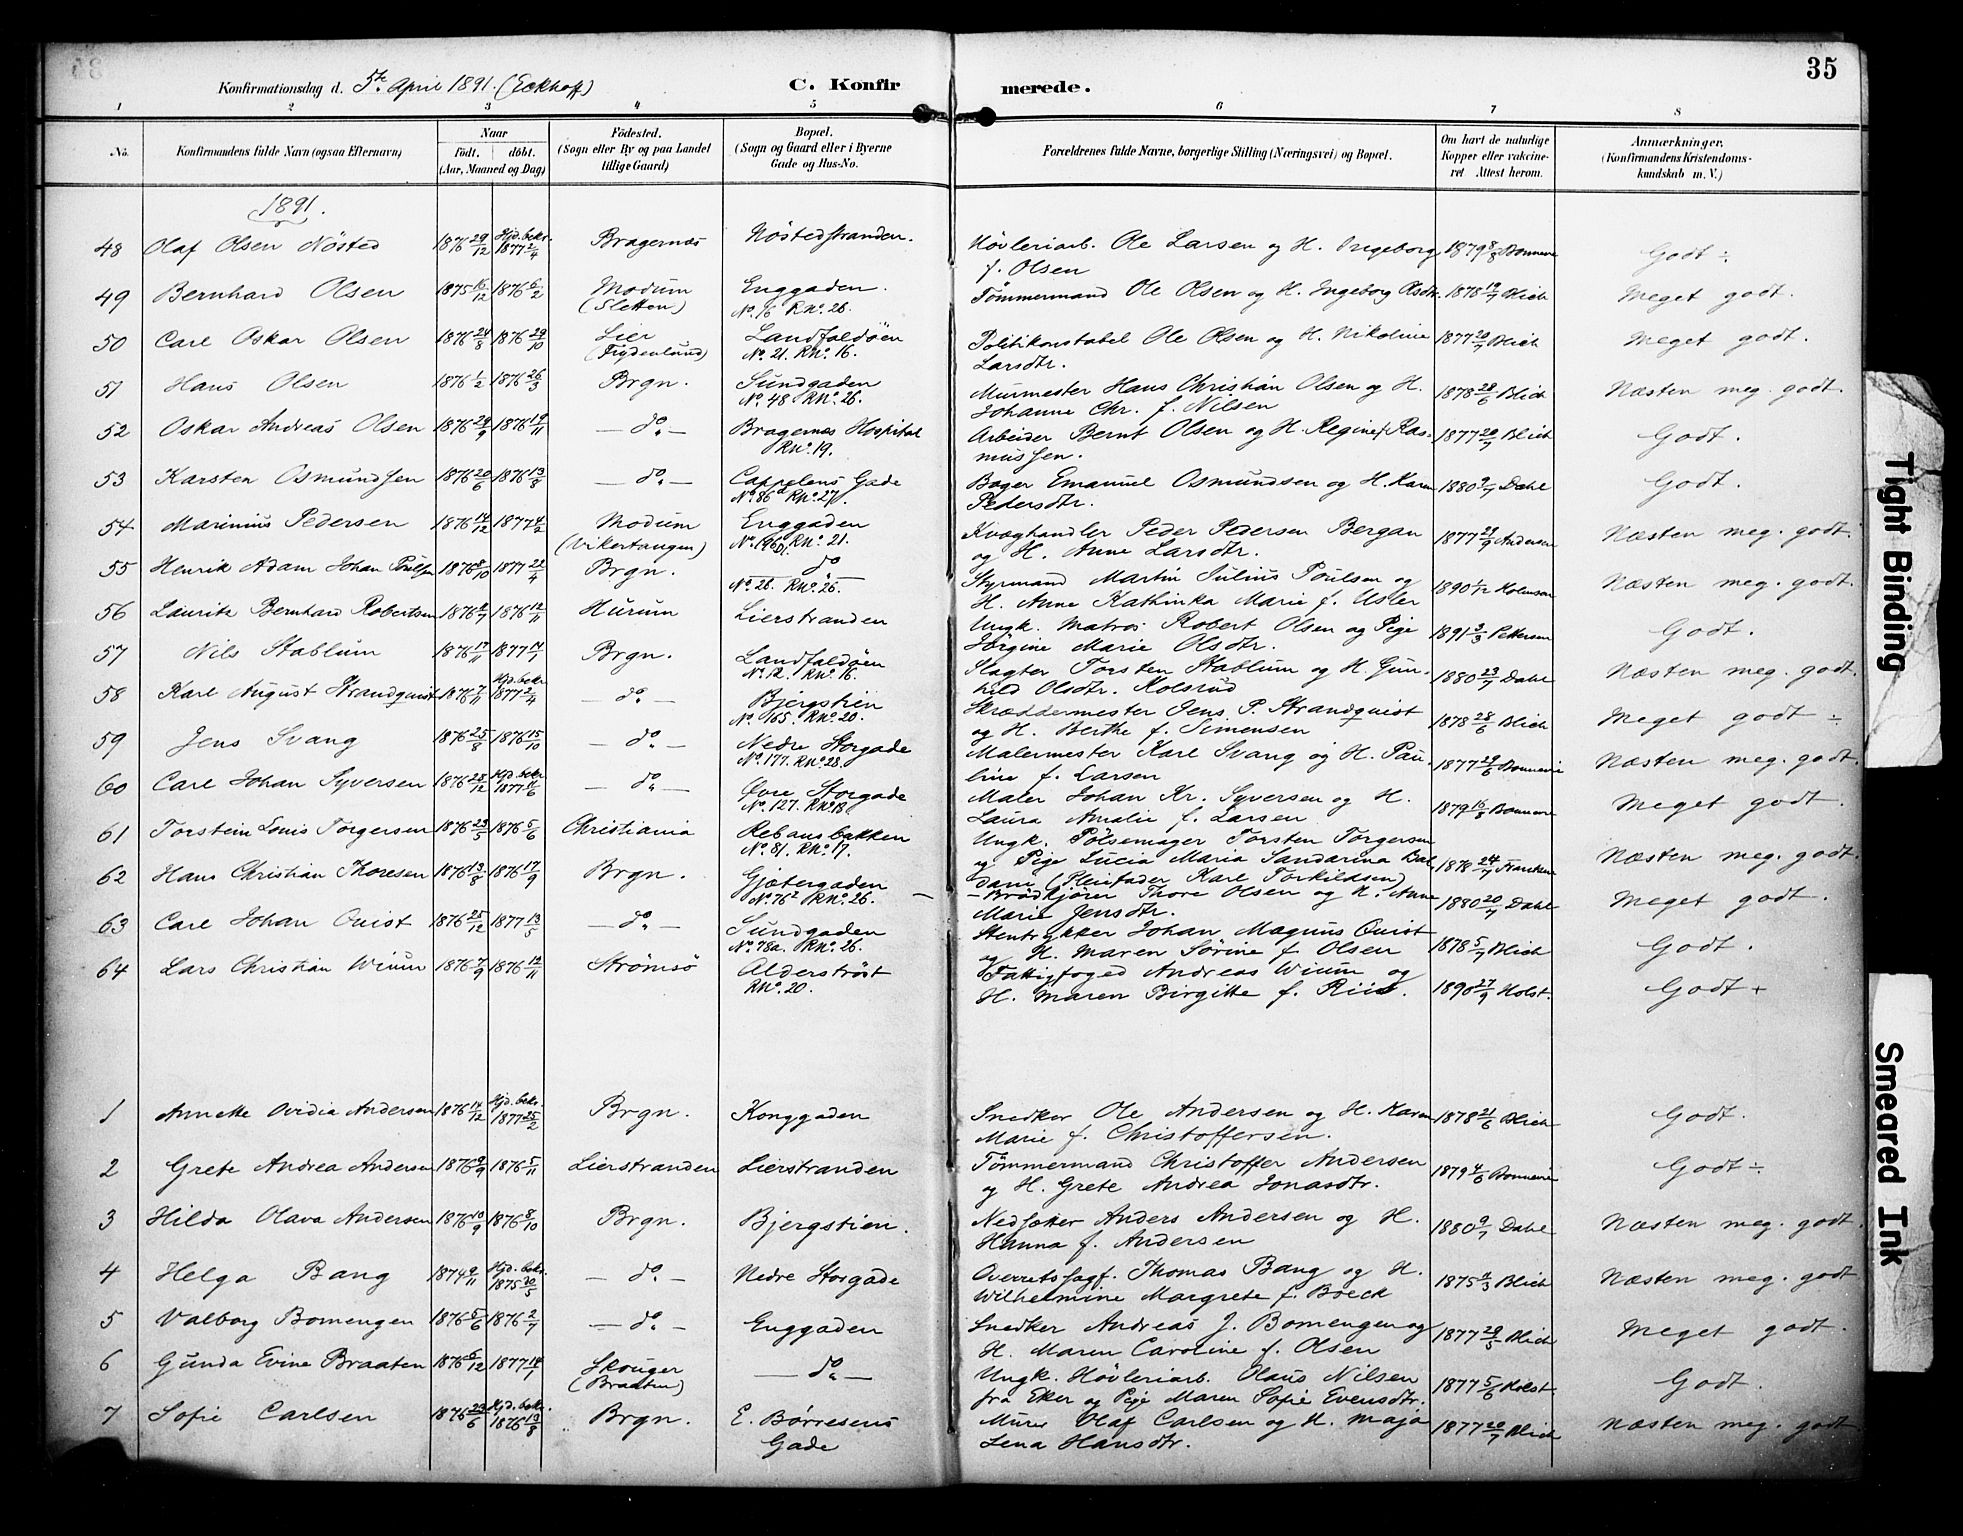 35
Konfirmationsdag d. 5te April 1891. (Eckhoff)
C. Konfirmerede.
1 2 3 4 5 6 7 8
No. Konfirmandens fulde Navn (ogsaa Efternavn) Naar født. døbt. (Aar, Maaned og Dag) Fødested. (Sogn eller By og paa Landet tillige Gaard) Bopæl. (Sogn og Gaard eller i Byerne Gade og Hus-No. Forældrenes fulde Navne, borgerlige Stilling (Næringsvei) og Bopæl. Om havt de naturlige Kopper eller vakcineret Attest herom. Anmærkninger. (Konfirmandens Kristendomskundskab m. V.)
1891.
48 Olaf Olsen Nösted 1876 29/12 Hjd. bekr. 1877 2/4 Bragernæs Nöstedstranden. Hövleriarb. Ole Larsen og H. Ingeborg f. Olsen 1879 8/3 Bonnevie Godt ÷
49 Bernhard Olsen 1875 16/12 1876 6/2 Modum (Sletten) Enggaden. No. 16 RNo. 26. Tömmermand Ole Olsen og H. Ingeborg Olsdtr. 1878 19/7 Blich Meget godt.
50 Carl Oskar Olsen 1876 24/8 1876 29/10 Lier (Frydenlund) Landfaldöen No. 21. RNo. 16. Politikonstabel Ole Olsen og H. Nikoline Larsdtr. 1877 20/7 Blich Meget godt.
51 Hans Olsen 1876 1/2 1876 26/3 Brgn. Sundgaden No. 48 RNo. 26. Murmester Hans Christian Olsen og H. Johanne Chr. f. Nilsen 1878 28/6 Blich Næsten meg. godt.
52 Oskar Andreas Olsen 1876 29/9 1876 19/11 — do. — Bragernæs Hospital RNo. 19. Arbeider Bernt Olsen og H. Regine f. Rasmussen. 1877 20/7 Blich Godt.
53 Karsten Osmundsen 1876 20/6 1876 13/8 — do. — Cappelens Gade No. 86a RNo. 27. Bager Emanuel Osmundsen og H. Karen Pedersdtr. 1880 9/7 Dahl Godt.
54 Marinius Pedersen 1876 14/12 1877 4/2 Modum (Vikertangen) Enggaden No. 196 D1. RNo. 21. Kvæghandler Peder Pedersen Bergan og H. Anne Larsdtr. 1877 29/9 Andersen Næsten meg. godt.
55 Henrik Adam Johan Poulsen 1876 8/10 1877 22/4 Brgn. do No. 26. RNo. 25. Styrmand Martin Julius Poulsen og H. Anne Kathinka Marie f. Usler 1890 1/12 Holmsen Næsten meg. godt.
56 Laurits Bernhard Robertsen 1876 4/7 1876 12/11 Hurum Lierstranden Ungk. Matros Robert Olsen og Pige Jörgine Marie Olsdtr. 1891 3/3 Pettersen Godt.
57 Nils Stablum 1876 17/11 1877 14/1 Brgn. Landfaldöen No. 12. RNo. 16. Slagter Torsten Stablum og H. Gunhild Olsdtr. Kolsrud 1880 23/7 Dahl Næsten meg. godt
58 Karl August Strandquist 1876 7/11 Hjd. bekr. 1877 2/4 — do. — Bjergstien No. 165. RNo. 20. Skræddermester Jens P. Strandquist og H. Berthe f. Simensen 1878 28/6 Blich Meget godt ÷
59 Jens Svang 1876 25/8 1876 15/10 — do. — Nedre Storgade No. 177. RNo. 28. Malermester Karl Svang og H. Pauline f. Larsen 1877 29/6 Bonnevie Næsten meg. godt.
60 Carl Johan Syversen 1876 28/12 Hjd. bekr. 1877 11/6 — do. — Øvre Storgade No. 127. RNo. 18. Maler Johan Kr. Syversen og H. Laura Amalie f. Larsen 1879 16/3 Bonnevie Meget godt.
61 Torstein Louis Torgersen 1876 23/5 1876 5/6 Christiania Rebansbakken No. 81. RNo. 17. Ungk. Pölsemager Torsten Torgersen og Pige Lucia Maria Sandarina Baldami (Pleiefader Karl Torkildsen) 1878 24/7 Næsten meg. godt.
62 Hans Christian Thoresen 1876 13/8 1876 17/9 Brgn. Gjætergaden No. 76² RNo. 26. — Brödkjörer Thore Olsen og H. Anne Marie Jensdtr. 1880 20/7 Dahl Meget godt.
63 Carl Johan Quist 1876 25/12 1877 13/5 — do. — Sundgaden No. 78a. RNo. 26. Stentrykker Johan Magnus Quist og H. Maren Sörine f. Olsen 1878 5/7 Blich Godt.
64 Lars Christian Wium 1876 7/9 1876 12/11 Strömsö Alderströst RNo. 20. Fattigfoged Andreas Wium og H. Maren Birgitte f. Riis. 1890 27/9 Holst. Godt +
1 Annette Ovidia Andersen 1876 14/12 Hjd. bekr. 1877 25/2 Brgn. Konggaden Snedker Ole Andersen og H. Karen Marie f. Christoffersen. 1878 21/6 Blich Godt.
2 Grete Andrea Andersen 1876 9/9 1876 5/11 Lierstranden Lierstranden Tömmermand Christoffer Andersen og H. Grete Andrea Jonasdtr. 1879 4/6 Bonnevie Godt ÷
3 Hilda Olava Andersen 1876 10/9 1876 8/10 Brgn. Bjergstien. Nedsaker Anders Andersen og H. Hanna f. Andersen 1880 9/7 Dahl Næsten meg. godt.
4 Helga Bang 1874 9/11 Hjd. bekr. 1875 30/5 — do. — Nedre Storgade Overretssagf. Thomas Bang og H. Wilhelmine Margrete f. Boeck 1875 11/3 Blich Næsten meg. godt
5 Valborg Bomengen 1876 5/6 1876 2/7 — do. — Enggaden Snedker Andreas J. Bomengen og H. Maren Caroline f. Olsen 1877 29/5 Blich Meget godt.
6 Gunda Evine Braaten 1876 6/12 1877 14/1 Skouger (Braaten) — do — Ungk. Hövleriarb. Olaus Nilsen fra Eker og Pige Maren Sofie Evensdtr. 1877 5/6 Holst Godt.
7 Sofie Carlsen 1876 23/6 Hjd. bekr. 1876 13/8 Brgn. E. Börresens Gade Murer Olaf Carlsen og H. Maja Lena Hansdtr. 1877 20/7 Blich Næsten meg. godt
Tight Binding
Smeared Ink